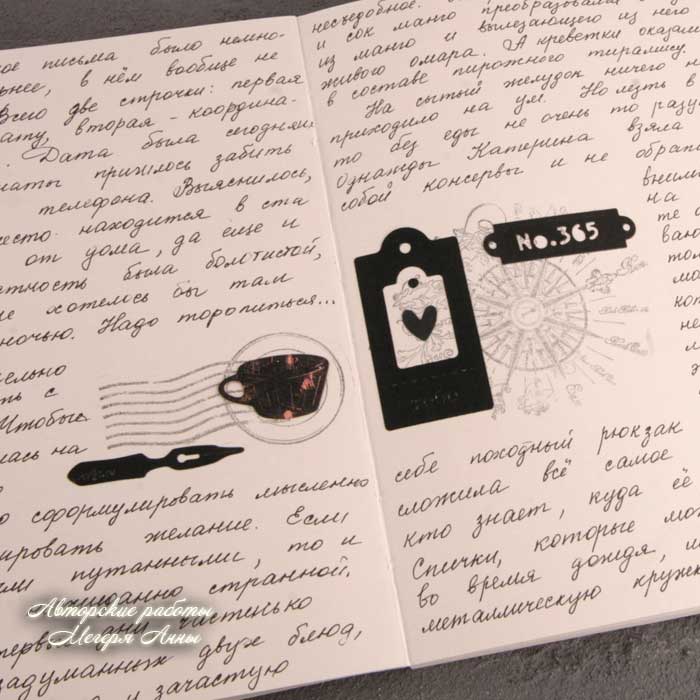 ое письма было немно-
ьнее, в нём вообще не
Всего две строчки: первая
дату, вторая - координа-
. Дата была сегодняш
наты пришлось забить
телефона. Выяснилось,
место находится в ста
от дома, да еще и
стность была болотистой,
не хотелось бы там
ночью. Надо торопиться...
ельно
ть с
Чтобы
лась на
о сформулировать мысленно
ировать желание. Если
ми путанными, то и
жиданно странной.
первые дни частенько
задуманных двух блюд,
и зачастую
Авторские работы
Мегеря Анны
несъедобное.
и сок манго преобразовали
из манго и вылезающего из него
живого омара. А креветки оказали
в составе пирожного тирамису.
На сытый желудок ничего н
приходило на ум. Но лезть в
то без еды не очень то разу
Однажды Катерина взяла
собой консервы и не обрати
внима
на
те о
вают
тол
ми
м
э
No.365
себе походный рюкзак
сложила всё самое
кто знает, куда её
Спички, которые мож
во время дождя, м
металлическую кружк